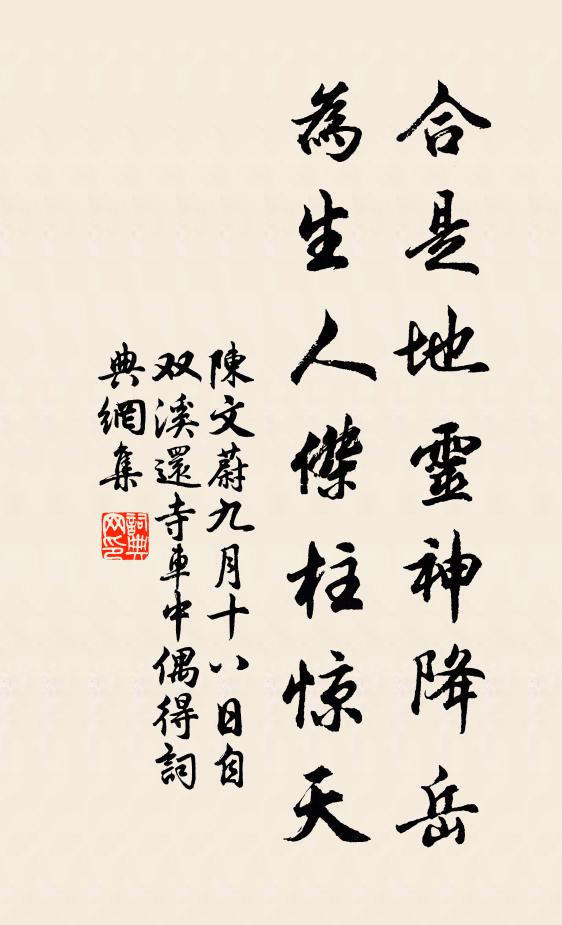 合是地靈神降岳
為生人傑柱惊天
陳文蔚九月十八日自
双溪還寺車中偶得詞
典網集
詞典
网印